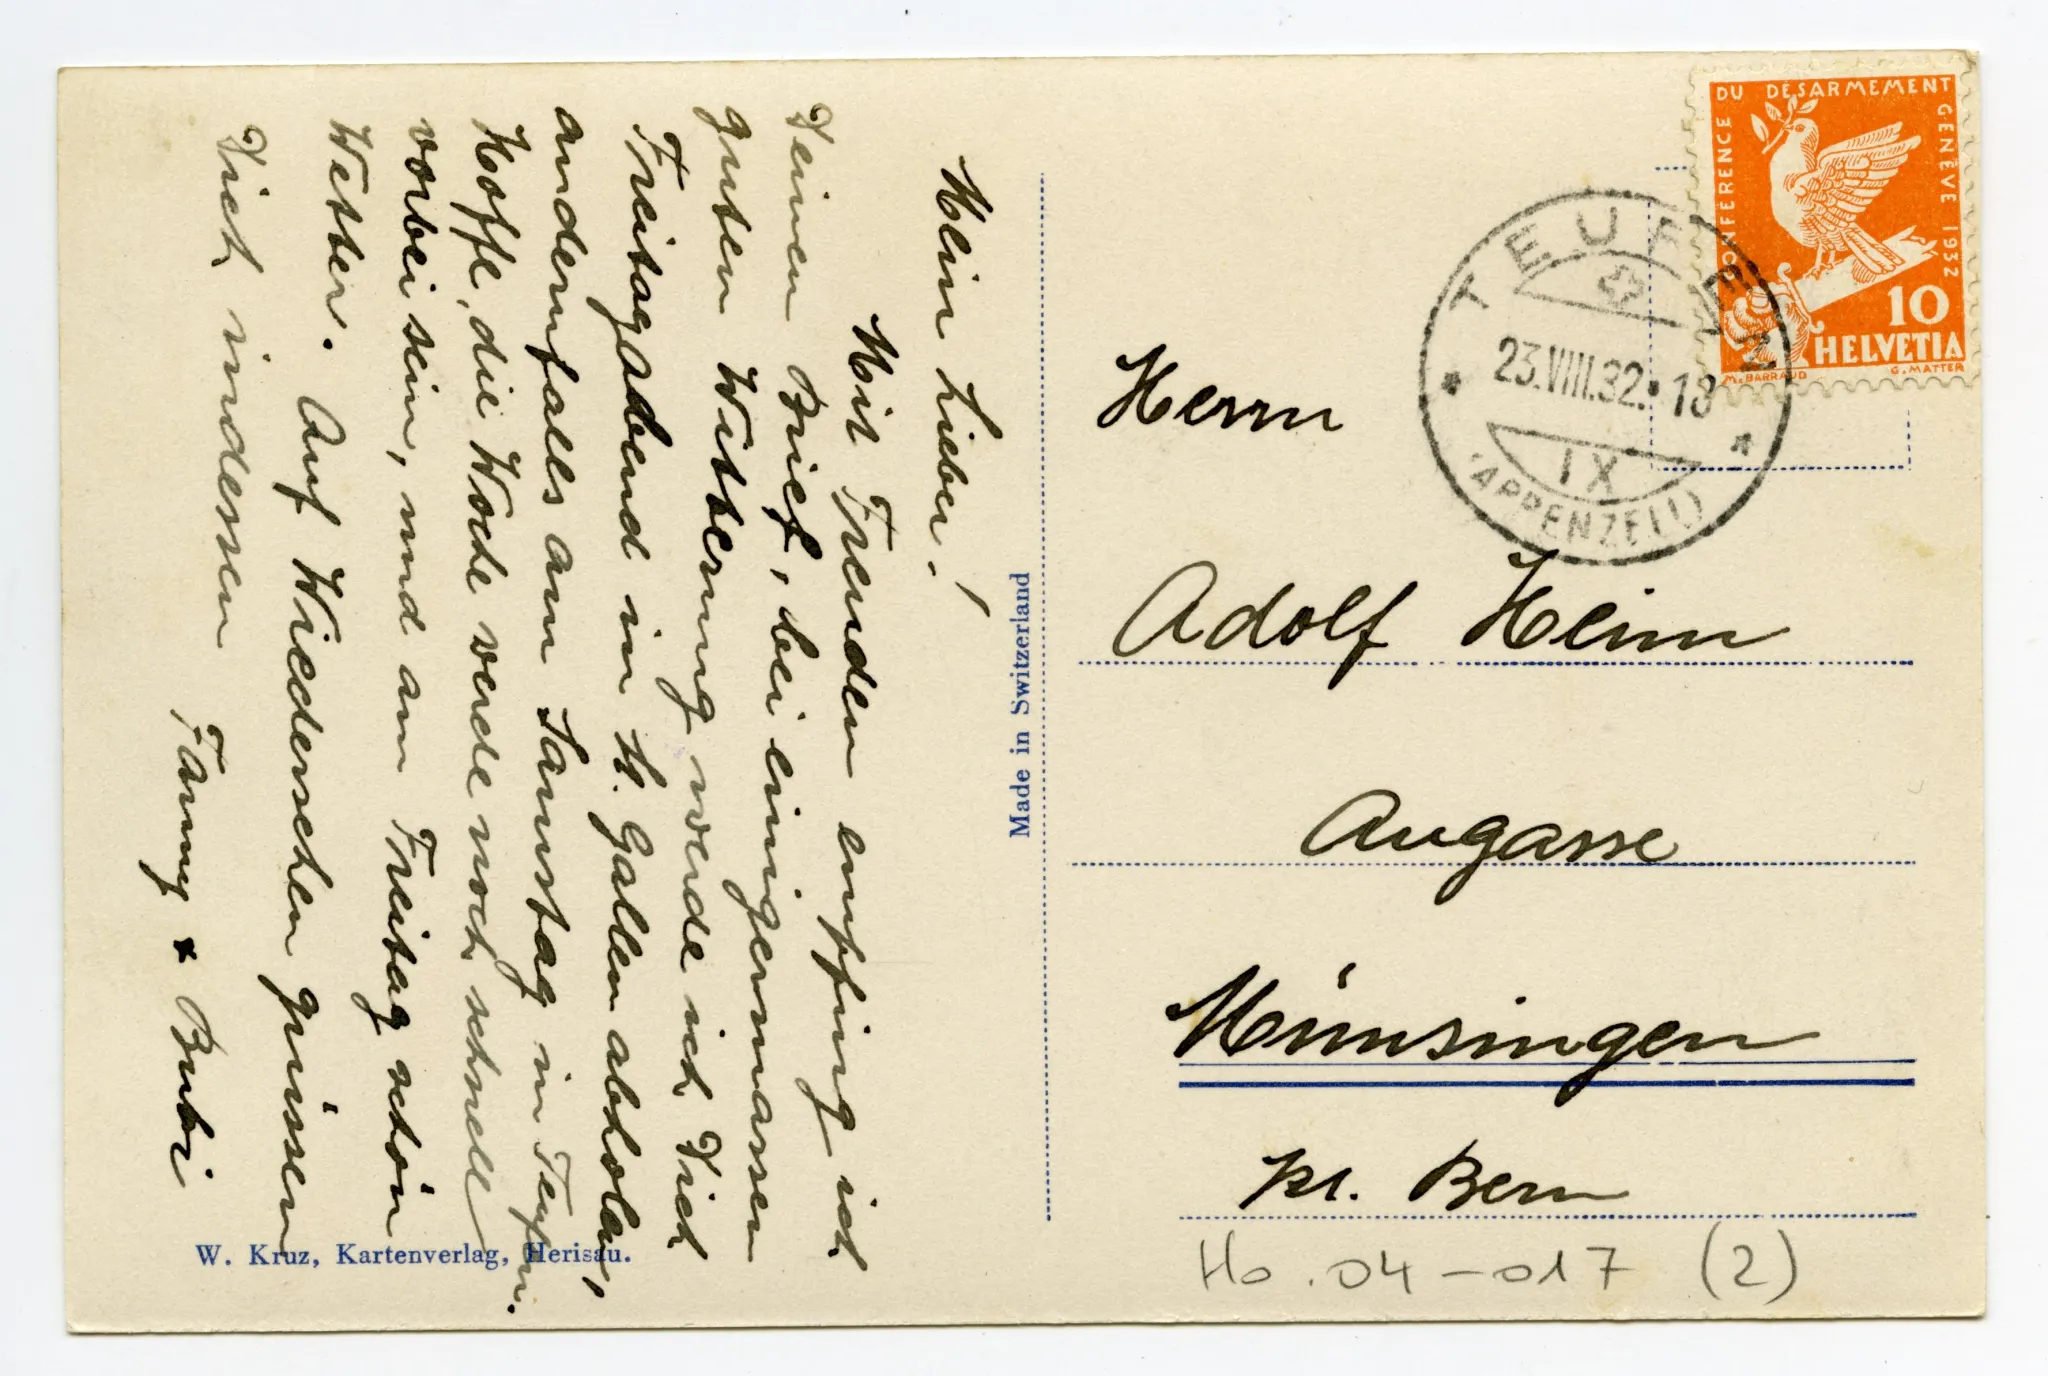 Mein Lieber!
Mit Freuden empfing ich
Deinen Brief, bei einigermassen
guten Witterung werde ich Dich
Freitagabend in St. Gallen abholen,
andernfalls am Samstag in Teufen.
Hoffe, die Woche werde noch schnell
vorbei sein, und am Freitag schön
Wetter. Auf Wiedersehen grüssen
Dich indessen
Fanny + Bubi
W. Kruz, Kartenverlag, Herisau.
Made in Switzerland
CONFERENCE DU DÉSARMEMENT GENÈVE 1932
10
HELVETIA
M. BARRAUD G. MATTER
TEUFEN
23.VIII.32.-18
IX
(APPENZELL)
Herrn
Adolf Heim
Augasse
Münsingen
kt. Bern
Ho.04-017 (2)